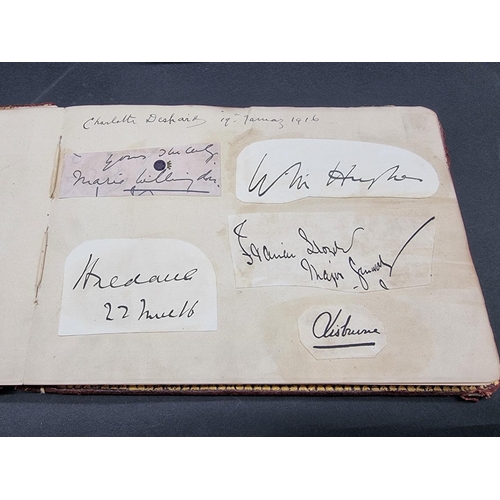 Charlotte Despard 19 January 1916
Yours sincerely
Marie Willingdon
Wm Hughes
Haldane
22 June 16
Francis Lloyd
Major General